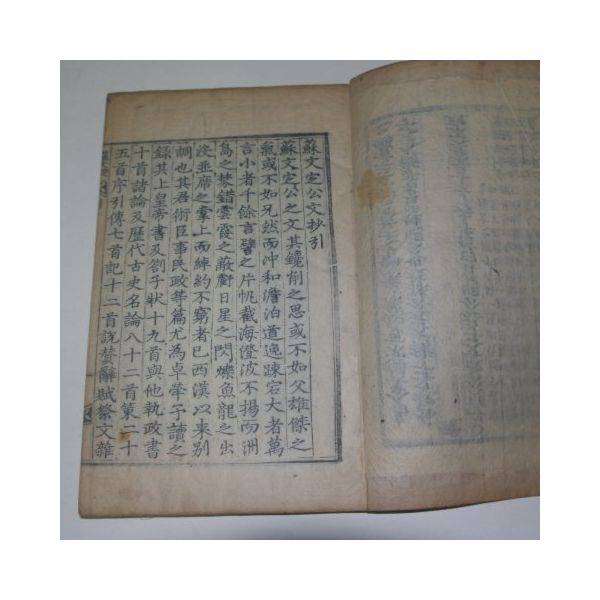 蘇文定公文抄引
蘇文定公之文其鑱削之思或不如父雄傑之
氣或不如兄然而沖和澹泊遒逸踈宕大者萬
言小者千餘言譬之片帆截海澄波不揚而洲
島之棼錯雲霞之蔽虧日星之閃爍魚龍之出
沒並席之掌上而綽約不窮者已西漢以來別
調也其君術臣事民政等篇尤為卓犖予讀之
錄其上皇帝書及劄子狀十九首與他執政書
十首諸論及歷代古史名論八十二首策二十
五首序引傳七首記十二首說贊辭賦祭文雜